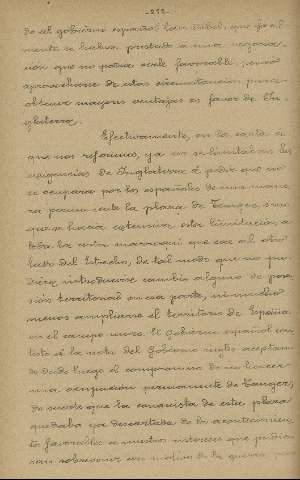 -272-
do el gobierno español tan debil, que facil
mente se habia prestado a una negocia-
ción que no podia serle favorable, pensó
aprovecharse de estas circunstancias para
obtener mayores ventajas en favor de In-
glaterra.
Efectivamente, en la carta a
que nos referimos, ya no se limitaban las
exigencias de Inglaterra á pedir que no
se ocupara por los españoles de una mane
ra permanente la plaza de Tanger, sino
que se hacia extensiva esta limitación a
toda la costa marroquí que cae al otro
lado del Estrecho, de tal modo que no pu
diera introducirse cambio alguno de pose
sión territorial en esa parte, ni mucho
menos ampliarse el territorio de España
en el campo moro. El Gobierno español con
testó á la nota del Gobierno inglés aceptan
do desde luego el compromiso de no hacer
una ocupación permanente de Tanger,
de suerte que la conquista de esta plaza
quedaba ya descartada de los acontecimien
tos favorables a nuestros intereses que pudie
ran sobrevenir con motivo de la guerra